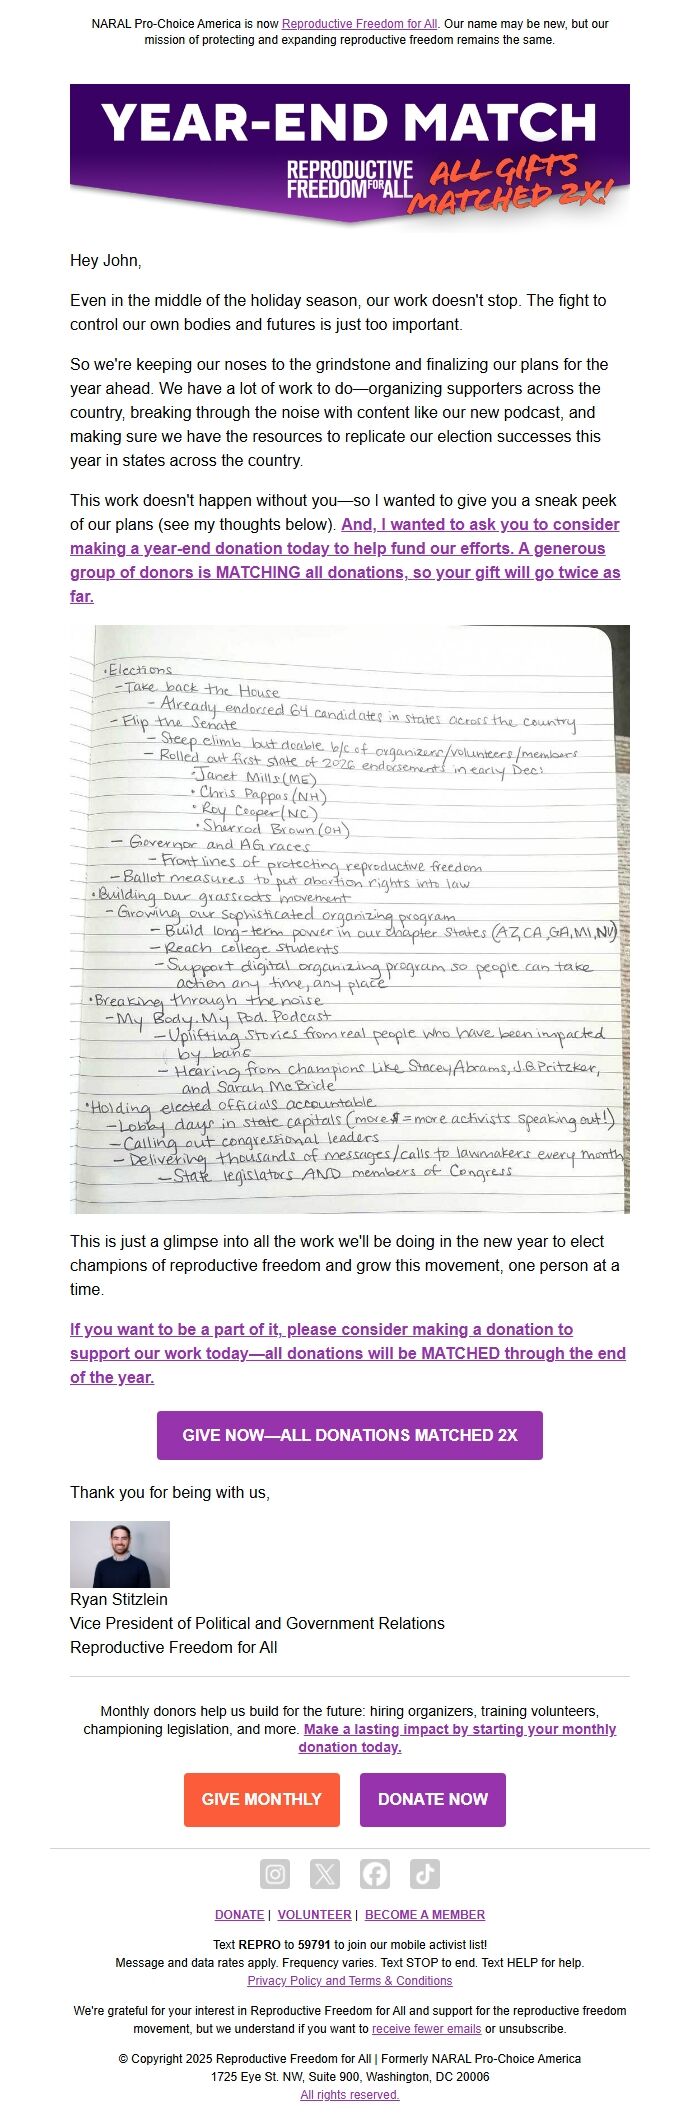 NARAL Pro-Choice America is now Reproductive Freedom for All. Our name may be new, but our
mission of protecting and expanding reproductive freedom remains the same.
YEAR-END MATCH
REPRODUCTIVE
FREEDOM FOR ALL
ALL GIFTS
MATCHED 2X!
Hey John,
Even in the middle of the holiday season, our work doesn't stop. The fight to
control our own bodies and futures is just too important.
So we're keeping our noses to the grindstone and finalizing our plans for the
year ahead. We have a lot of work to do—organizing supporters across the
country, breaking through the noise with content like our new podcast, and
making sure we have the resources to replicate our election successes this
year in states across the country.
This work doesn't happen without you—so I wanted to give you a sneak peek
of our plans (see my thoughts below). And, I wanted to ask you to consider
making a year-end donation today to help fund our efforts. A generous
group of donors is MATCHING all donations, so your gift will go twice as
far.
•Elections
- Take back the House
- Already endorsed 64 candidates in states across the country
- Flip the Senate
- Steep climb but doable b/c of organizers/volunteers/members
- Rolled out first slate of 2026 endorsements in early Dec:
•Janet Mills (ME)
• Chris Pappas (NH)
• Roy Cooper (NC)
• Sherrod Brown (OH)
- Governor and AG races
- Front lines of protecting reproductive freedom
- Ballot measures to put abortion rights into law
•Building our grassroots movement
- Growing our sophisticated organizing program
- Build long-term power in our chapter states (AZ, CA, GA, MI, NV)
- Reach college students
- Support digital organizing program so people can take
action any time, any place
•Breaking through the noise
- My Body. My Pod. Podcast
- Uplifting stories from real people who have been impacted
by bans
- Hearing from champions like Stacey Abrams, J.B. Pritzker,
and Sarah McBride
•Holding elected officials accountable
- Lobby days in state capitals (more $ = more activists speaking out!)
- Calling out congressional leaders
- Delivering thousands of messages/calls to lawmakers every month
- State legislators AND members of Congress
This is just a glimpse into all the work we'll be doing in the new year to elect
champions of reproductive freedom and grow this movement, one person at a
time.
If you want to be a part of it, please consider making a donation to
support our work today—all donations will be MATCHED through the end
of the year.
GIVE NOW—ALL DONATIONS MATCHED 2X
Thank you for being with us,
Ryan Stitzlein
Vice President of Political and Government Relations
Reproductive Freedom for All
Monthly donors help us build for the future: hiring organizers, training volunteers,
championing legislation, and more. Make a lasting impact by starting your monthly
donation today.
GIVE MONTHLY
DONATE NOW
DONATE | VOLUNTEER | BECOME A MEMBER
Text REPRO to 59791 to join our mobile activist list!
Message and data rates apply. Frequency varies. Text STOP to end. Text HELP for help.
Privacy Policy and Terms & Conditions
We're grateful for your interest in Reproductive Freedom for All and support for the reproductive freedom
movement, but we understand if you want to receive fewer emails or unsubscribe.
© Copyright 2025 Reproductive Freedom for All | Formerly NARAL Pro-Choice America
1725 Eye St. NW, Suite 900, Washington, DC 20006
All rights reserved.